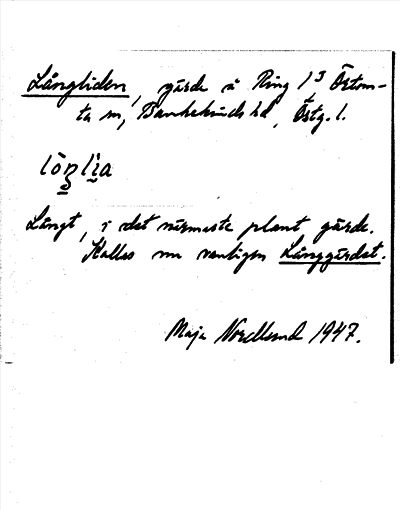 Långliden, gärde å Ring 1³ Örtom-
ta sn, Bankekinds hd, Östg. l.
lòŋlìa
Långt, i det närmaste plant gärde.
Kallas nu vanligen Långgärdet.
Maja Nordlund 1947.